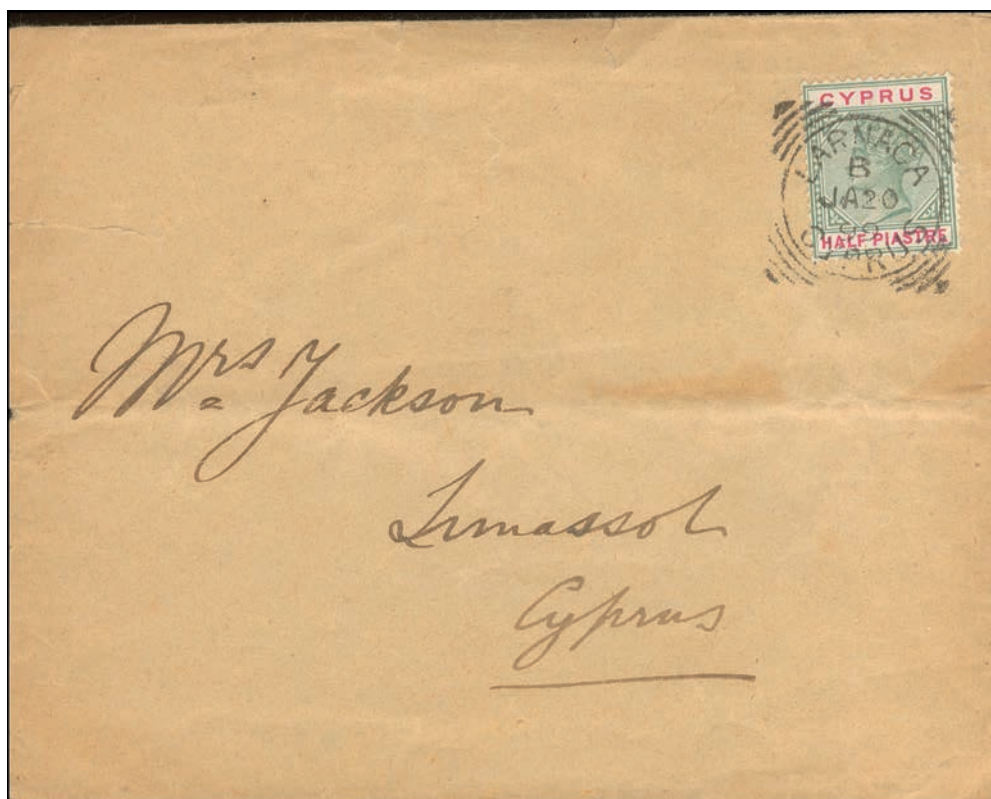 CYPRUS
LARNACA
B
JA 20
CYPRUS
HALF PIASTRE
Mrs Jackson
Limassol
Cyprus